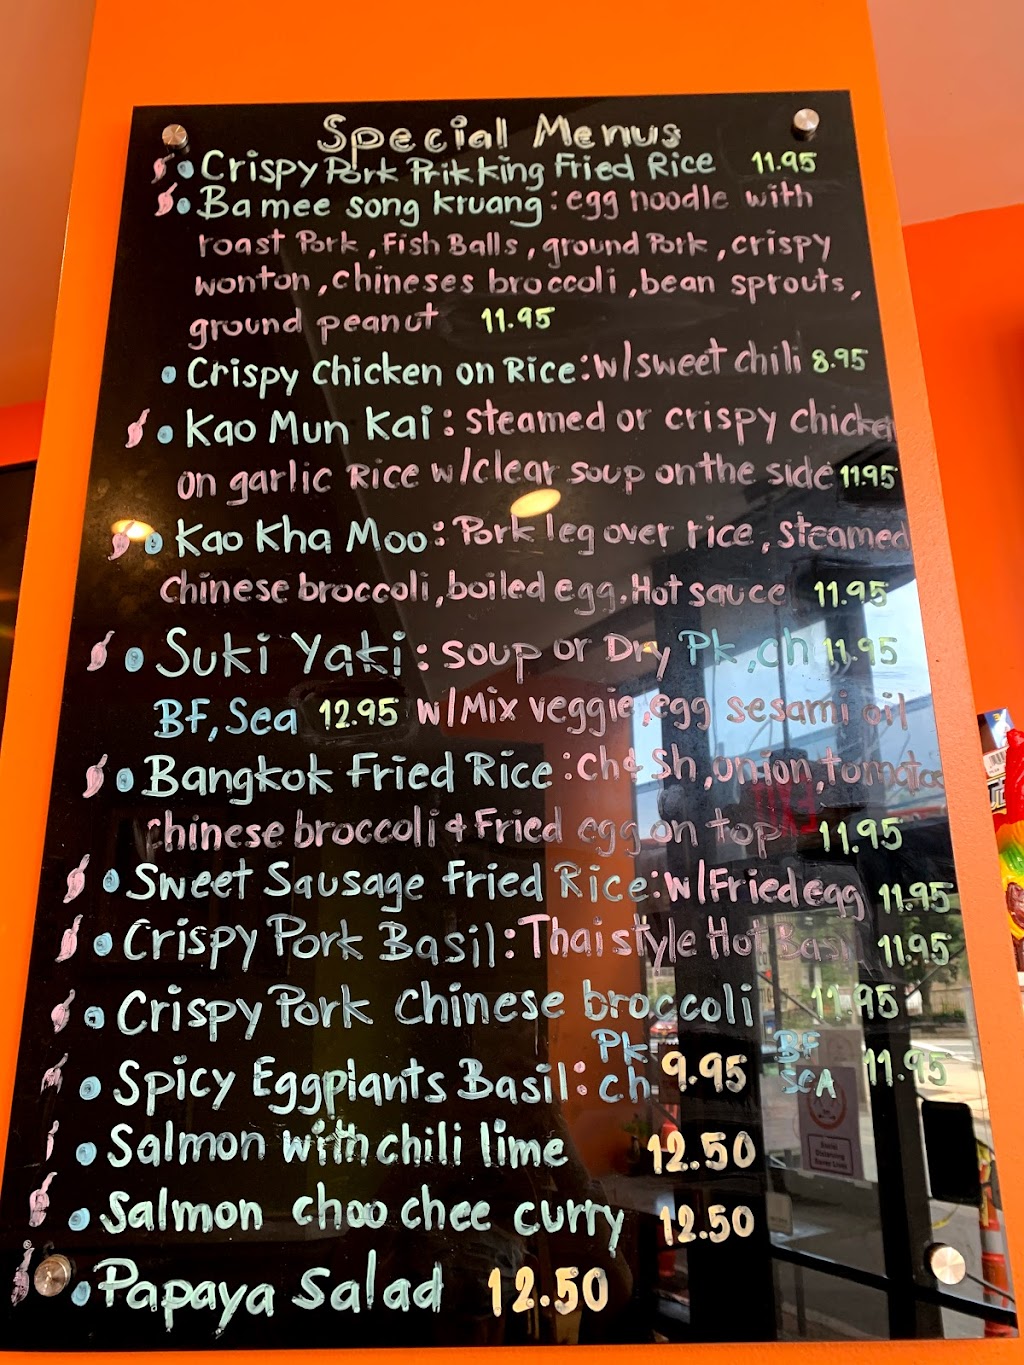 Special Menus
Crispy Pork Prikking Fried Rice 11.95
Ba mee song kruang: egg noodle with
roast Pork, Fish Balls, ground Pork, crispy
wonton, chineses broccoli, bean sprouts,
ground peanut 11.95
Crispy Chicken on Rice: w/sweet chili 8.95
Kao Mun Kai: steamed or crispy chicken
on garlic Rice w/clear soup on the side 11.95
Kao Kha Moo: Pork leg over rice, steamed
Chinese broccoli, boiled egg, Hot sauce 11.95
Suki Yaki: soup or Dry Pk, ch 11.95
BF, Sea 12.95 w/Mix veggie, egg sesami oil
Bangkok Fried Rice: ch & Sh, onion, tomatoe
chinese broccoli & Fried egg on top 11.95
Sweet Sausage Fried Rice: w/Fried egg 11.95
Crispy Pork Basil: Thai style Hot Basil 11.95
Crispy Pork Chinese broccoli 11.95
Spicy Eggplants Basil: Pk ch 9.95 BF SEA 11.95
Salmon with chili lime 12.50
Salmon choo chee curry 12.50
Papaya Salad 12.50
Social
Distancing
Saves Lives